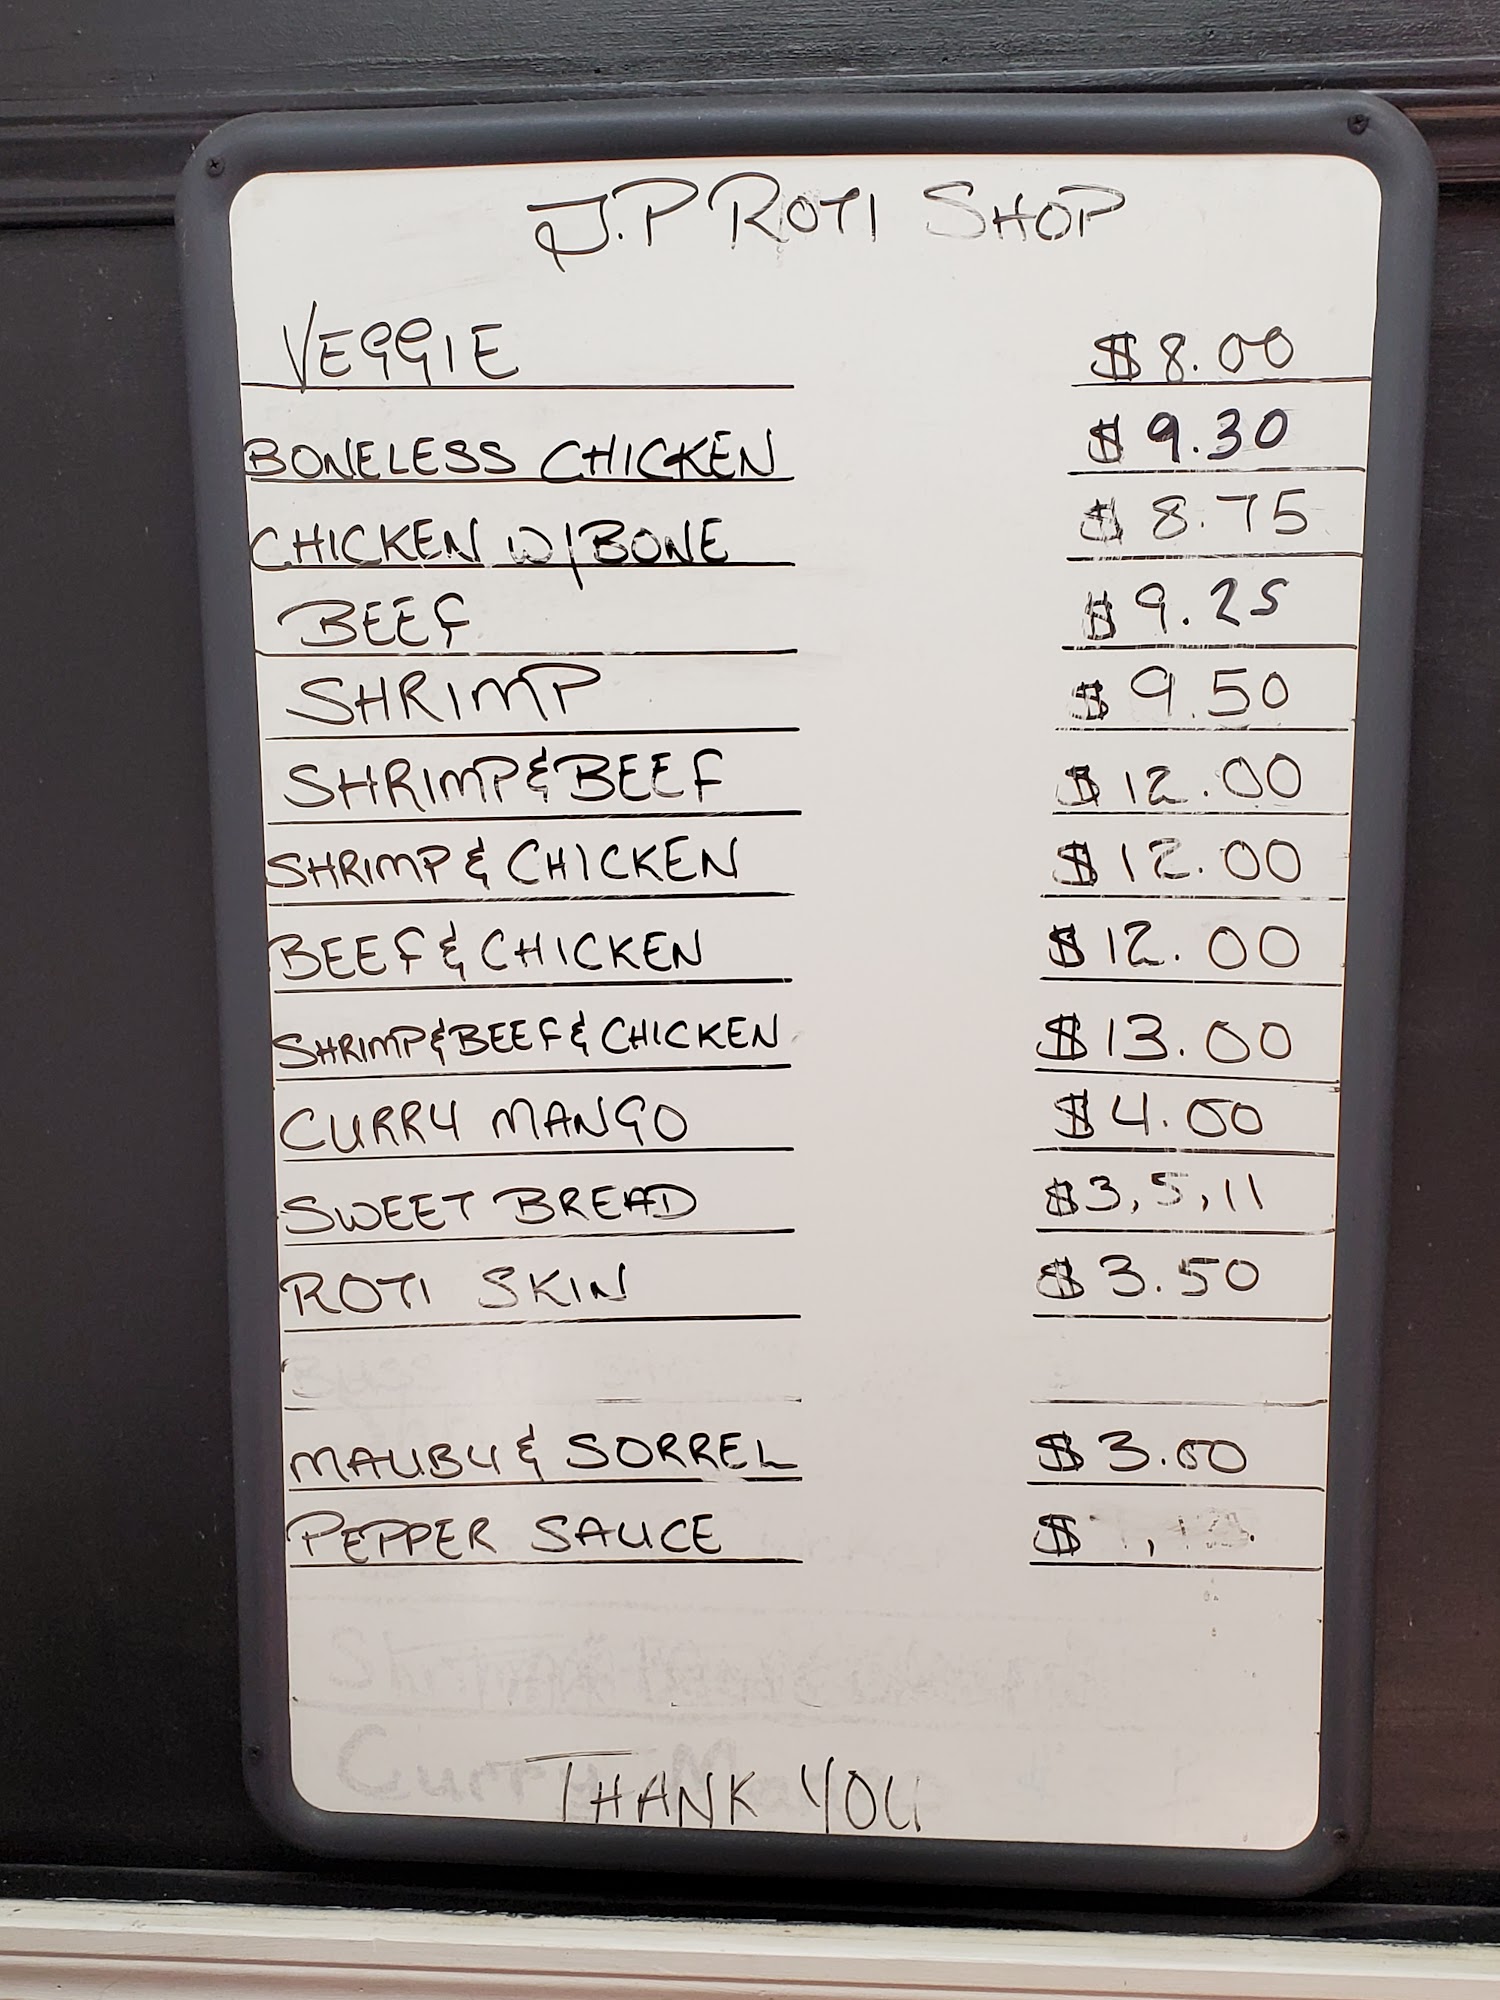 J.P ROTI SHOP
VEGGIE $8.00
BONELESS CHICKEN $9.30
CHICKEN W/BONE $8.75
BEEF $9.25
SHRIMP $9.50
SHRIMP & BEEF $12.00
SHRIMP & CHICKEN $12.00
BEEF & CHICKEN $12.00
SHRIMP & BEEF & CHICKEN $13.00
CURRY MANGO $4.00
SWEET BREAD $3,5,11
ROTI SKIN $3.50
MAUBY & SORREL $3.00
PEPPER SAUCE $
Curry
THANK YOU